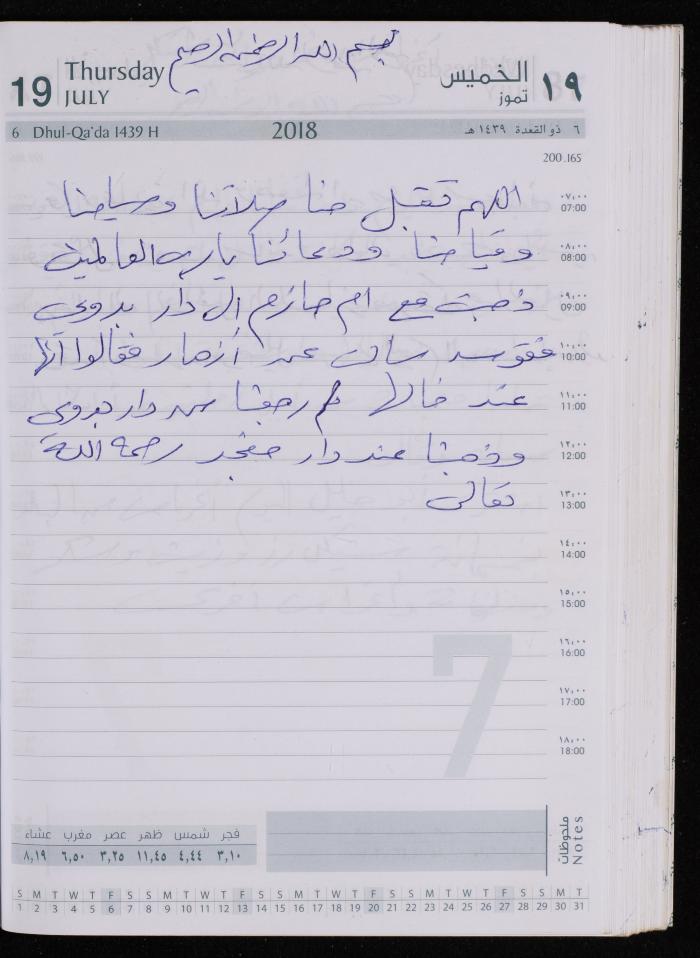 بسم الله الرحمن الرحيم
19 Thursday JULY الخميس تموز ١٩
6 Dhul-Qa'da 1439 H 2018 ٦ ذو القعدة ١٤٣٩ هـ
200 .165
اللهم تقبل منا صلاتنا وصيامنا
٠٧:٠٠ 07:00
وقيامنا ودعائنا يا رب العالمين
٠٨:٠٠ 08:00
ذهبت مع ام حازم الى دار بدوي
٠٩:٠٠ 09:00
عن فقالوا انها
١٠:٠٠ 10:00
عند خالها ثم رجعنا من دار بدوي
١١:٠٠ 11:00
وذهبنا عند دار رحمة الله
١٢:٠٠ 12:00
تعالى
١٣:٠٠ 13:00
١٤:٠٠ 14:00
١٥:٠٠ 15:00
١٦:٠٠ 16:00
١٧:٠٠ 17:00
١٨:٠٠ 18:00
7
ملحوظات Notes
فجر شمس ظهر عصر مغرب عشاء
٣,١٠ ٤,٤٤ ١١,٤٥ ٣,٢٥ ٦,٥٠ ٨,١٩
S M T W T F S M T W T F S M T W T F S M T W T F S M T
1 2 3 4 5 6 7 8 9 10 11 12 13 14 15 16 17 18 19 20 21 22 23 24 25 26 27 28 29 30 31